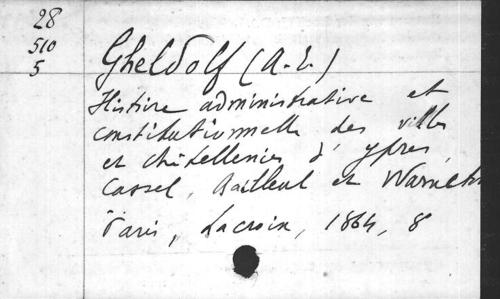 28
510
5
Gheldolf (A.E.)
Histoire administrative et
constitutionnelle des villes
et châtellenies d'Ypres,
Cassel, Bailleul et Warneton
Paris, Lacroix, 1864, 8